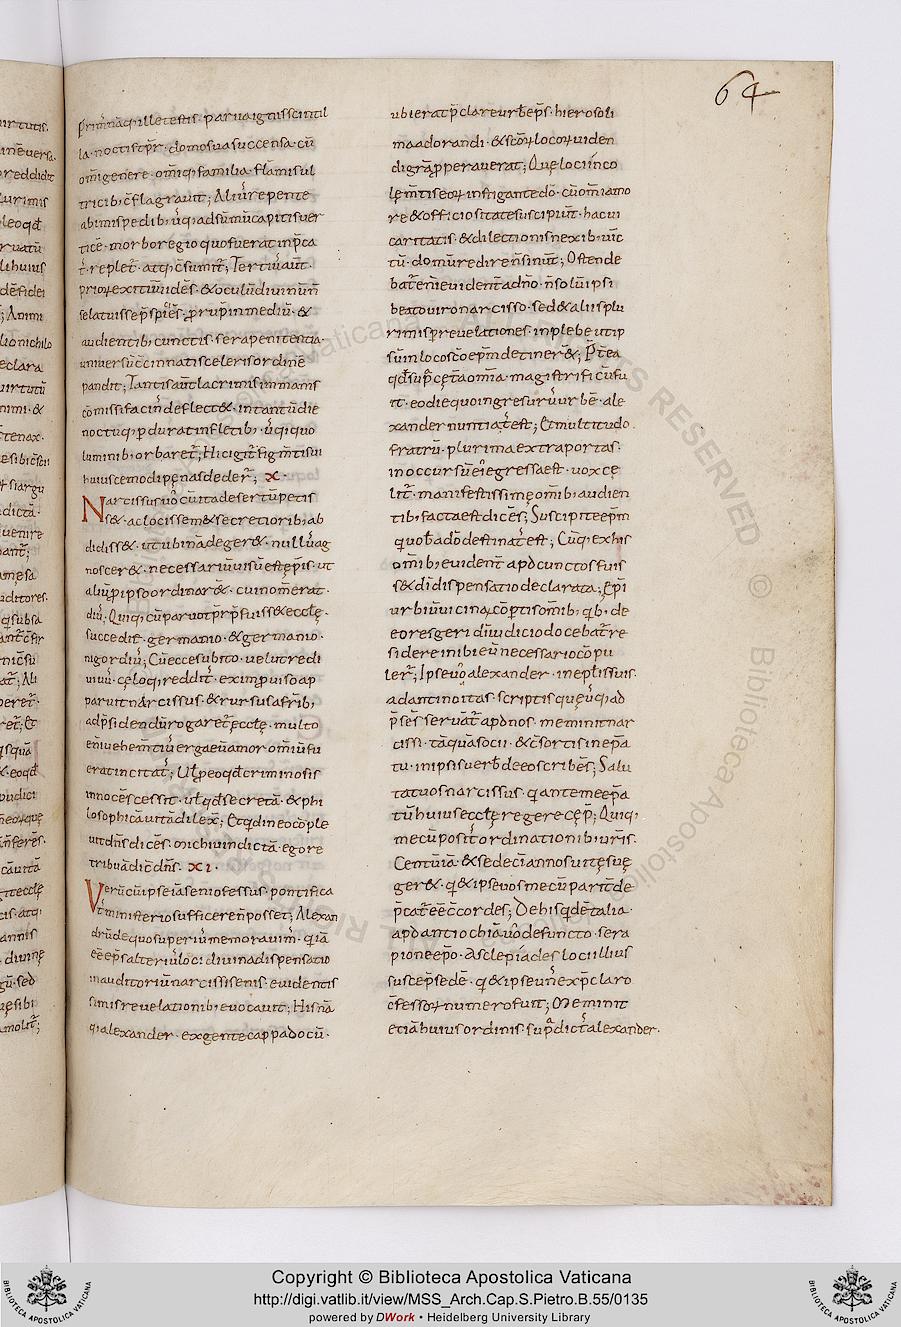 64
Primꝰ naq; ille testis. parua ignis scintil
la. noctis tp̄r. domo sua succensa. cū
om̄i genere. om̄iq; familia. flām̄is ul
tricib; c̄flagrauit; Aliꝰ repente
ab imis pedib; usq; ad sūmū capitis uer
ticē. morbo regio quo fuerat inp̄ca
tꝰ. repletꝰ. atq; c̄sumit̄; Tertiꝰ aūt.
audientib; cunctis. sera penitentia.
uniuersū c̄cinnati sceleris ordinē
pandit; Tantis aūt lacrimis immanis
cōmissi facinꝰ deflect&. intantū die
noctuq; pdurat in fletib;. usq; quo
luminib; orbaret̄; Hi cigit̄ figm̄ti sui
huiuscemodi pęnas dederꝰ; x.
Narcissus u̅o cū ita deser tū petis
s&. ac locis se in & secretiorib; ab
didiss&. ut ubinā deger&. nullꝰ ag
noscer&. necessariū uisū est ep̄is. ut
aliū p ipso ordinar&. cui nom̄ erat.
diꝰ; Qui q; cū paruo tp̄r p̄fuiss& eccłę.
successit. germanio. & germanio.
nigordiꝰ; Cū ecce subito. uelut redi
uiuꝰ. cęloq; redditꝰ. ex improuiso ap
paruit narcissus. & rursus a fr̄ib;
ad p̄sidendū rogaret̄ eccłę. multo
en̄i uehem̄tiꝰ erga eū amor om̄iū fu
erat incitatꝰ; Ut̄ p eo qd̄ criminosis
innocēs cessit. ut̄ qd̄ secretā. & phi
losophicā uitā dilex̄; Et qd̄ in eo cōple
uit dn̄s dicēs. michi uindictā. ego re
tribuā dic̄ dn̄s. xi.
Verū cū ipse iā senio fessus. pontifica
tꝰ ministerio sufficere n̄ posset; Alexan
drū de quo superiꝰ memorauimꝰ. q iā
eē ep̄s alteriꝰ loci diuina dispensatio
in auditoriū narcissi senis. euidentis
simis reuelationib; euocauit; Hisnā
q; alexander. ex gente cappadocū.
ubi erat p̄clare urb ep̄s. hierosoli
ma adorandi. & sc̄oꝝ locoꝝ uiden
di gr̄a pperauerat; Quę loci inco
lę m̄tis eoꝝ instigante dō. cū om̄i amo
re & officiositate suscipiūt. hac ui
caritatis. & dilectionis nexib; uic
tū. domū redire n̄ sinūt; Ostende
bat̄ en̄i euident̄ a dn̄o. n̄ solū ipsi
beato uiro narcisso. sed & aliis plu
rimis p reuelationes. in plebe ut ip
sūm loco sc̄o ep̄m detiner&; P̄tea
qd̄ sup̄ cęt̄a om̄ia. magistrifi cū fu
it. eo die quo ingresurꝰ urbē. ale
xander nuntiatꝰ est; Et multitudo
fratrū. plurima extra portas.
in occursū ei egressa est. uox cę
litꝰ. manifestissime om̄ib; audien
tib; facta est dicēs; Suscipite ep̄m
qui uobis a dō destinatꝰ est; Cūq; ex his
om̄ib; euident̄ apd̄ cunctos fuis
s& di dispensatio declarata; Ep̄i
urbiū uicinaꝝ cōp̄tis om̄ib;. q; b; de
eo res geri. diꝰ iudicio docebat̄ re
sidere inibi eū necessario cōpu
lerꝰ; Ipse u̅o alexander. in epłis suis.
ad antinoitas. scriptis quę usq; ad
p̄sēs seruat̄ apd̄ nos. meminit nar
cissi. tāquā socii. & c̄sortis in ep̄a
tu. in ipsis uerb de eo scribēs; Salu
tat uos narcissus. q ante me ep̄a
tū huius eccłę regere cęp̄; Qui q;
mecū positꝰ ordinationib; ur̄is.
Centū iā. & sedeci annos uitę suę
ger&. q & ipse uos mecū parit̄ de
p̄catꝰ eē c̄cordes; De his qd̄ē talia.
apd̄ antiochiā u̅o defuncto. sera
pione ep̄o. Asclepiades loc illius
suscep̄ sedē. q & ipse un̄ ex p̄claro
c̄fessoꝝ numero fuit; Meminit
etiā huius ordinis. sup̄dictꝰ alexander.
Copyright © Biblioteca Apostolica Vaticana
http://digi.vatlib.it/view/MSS_Arch.Cap.S.Pietro.B.55/0135
powered by DWork • Heidelberg University Library